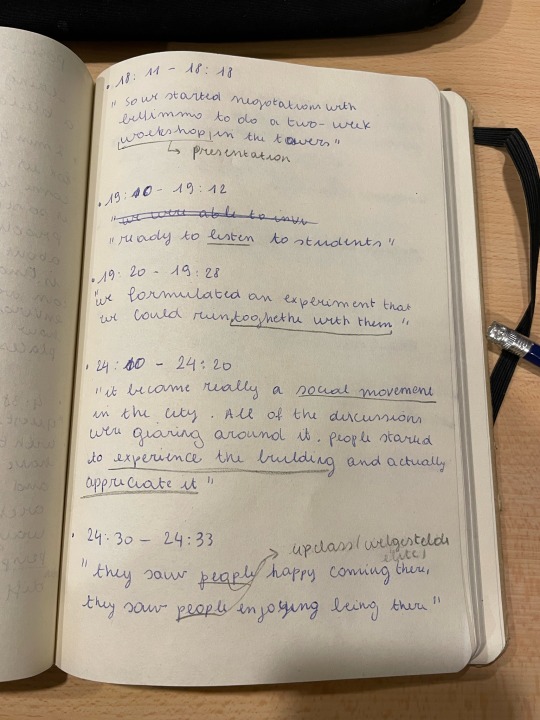 • 18:11 - 18:18
" so we started negotations with
bellimmo to do a two-week
workshop in the towers "
↳ presentation
• 19:10 - 19:12
"we were able to invi
"ready to listen to students"
• 19:20 - 19:28
"we formulated an experiment that
we could run, tooghethe with them "
• 24:10 - 24:20
"it became really a social movement
in the city. All of the discussions
were gearing around it. people started
to experience the building and actually
appriciate it "
• 24:30 - 24:33
upclass / welgestelde
elite/
" they saw people happy coming there,
they saw people enjoying being there "